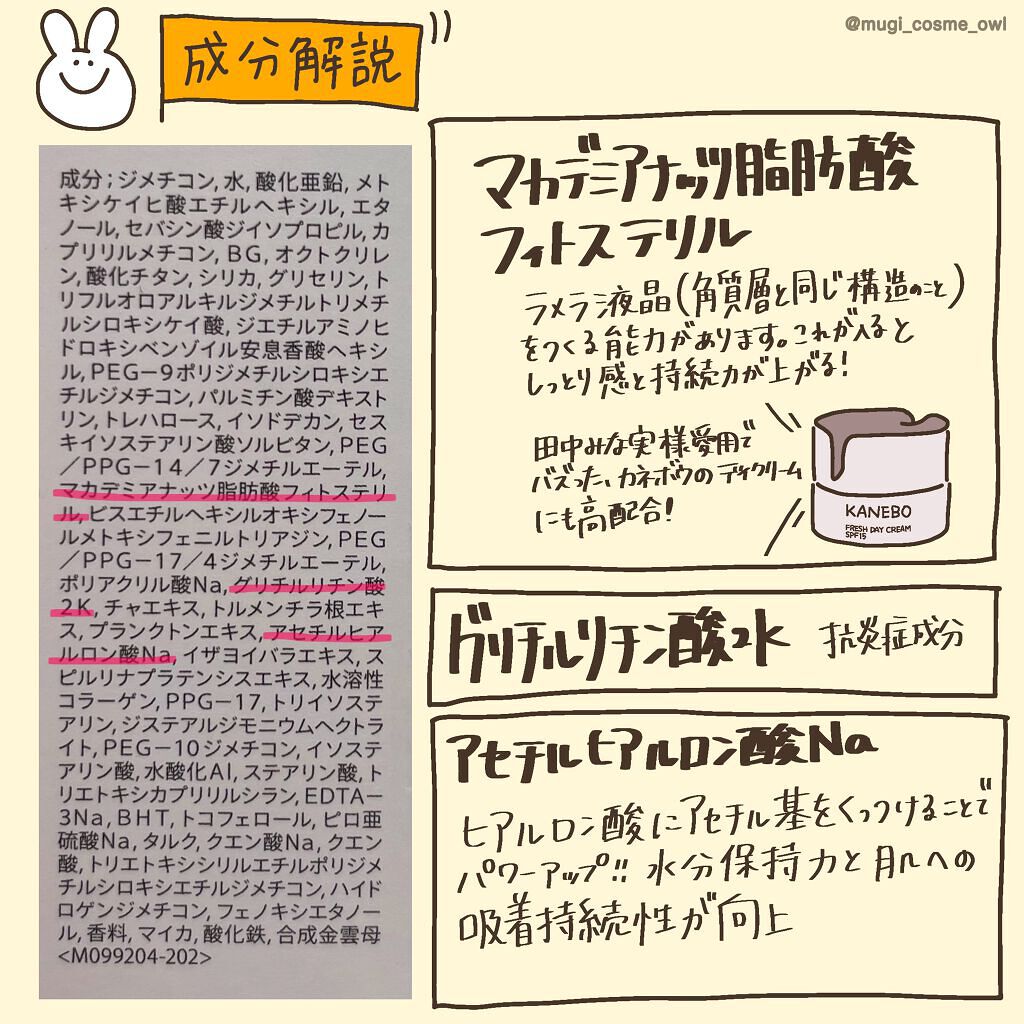 @mugi_cosme_owl
成分解説
成分;ジメチコン,水,酸化亜鉛,メト
キシケイヒ酸エチルヘキシル,エタ
ノール,セバシン酸ジイソプロピル,カ
プリリルメチコン,BG,オクトクリレ
ン,酸化チタン,シリカ,グリセリン,ト
リフルオロアルキルジメチルトリメチ
ルシロキシケイ酸,ジエチルアミノヒ
ドロキシベンゾイル安息香酸ヘキシ
ル,PEG-9ポリジメチルシロキシエ
チルジメチコン,パルミチン酸デキスト
リン,トレハロース,イソドデカン,セス
キイソステアリン酸ソルビタン,PEG
/PPG-14/7ジメチルエーテル,
マカデミアナッツ脂肪酸フィトステリ
ル,ビスエチルヘキシルオキシフェノー
ルメトキシフェニルトリアジン,PEG
/PPG-17/4ジメチルエーテル,
ポリアクリル酸Na,グリチルリチン酸
2K,チャエキス,トルメンチラ根エキ
ス,プランクトンエキス,アセチルヒア
ルロン酸Na,イザヨイバラエキス,ス
ピルリナプラテンシスエキス,水溶性
コラーゲン,PPG-17,トリイソステ
アリン,ジステアルジモニウムヘクトラ
イト,PEG-10ジメチコン,イソステ
アリン酸,水酸化Al,ステアリン酸,ト
リエトキシカプリリルシラン,EDTA-
3Na,BHT,トコフェロール,ピロ亜
硫酸Na,タルク,クエン酸Na,クエン
酸,トリエトキシシリルエチルポリジメ
チルシロキシエチルジメチコン,ハイド
ロゲンジメチコン,フェノキシエタノー
ル,香料,マイカ,酸化鉄,合成金雲母
<M099204-202>
マカデミアナッツ脂肪酸
フィトステリル
ラメラ液晶(角質層と同じ構造のこと)
をつくる能力があります。これが入ると
しっとり感と持続力が上がる!
田中みな実様愛用で
バズった、カネボウのデイクリーム
にも高配合!
KANEBO
FRESH DAY CREAM
SPF15
グリチルリチン酸2K 抗炎症成分
アセチルヒアルロン酸Na
ヒアルロン酸にアセチル基をくっつけることで
パワーアップ!!水分保持力と肌への
吸着持続性が向上